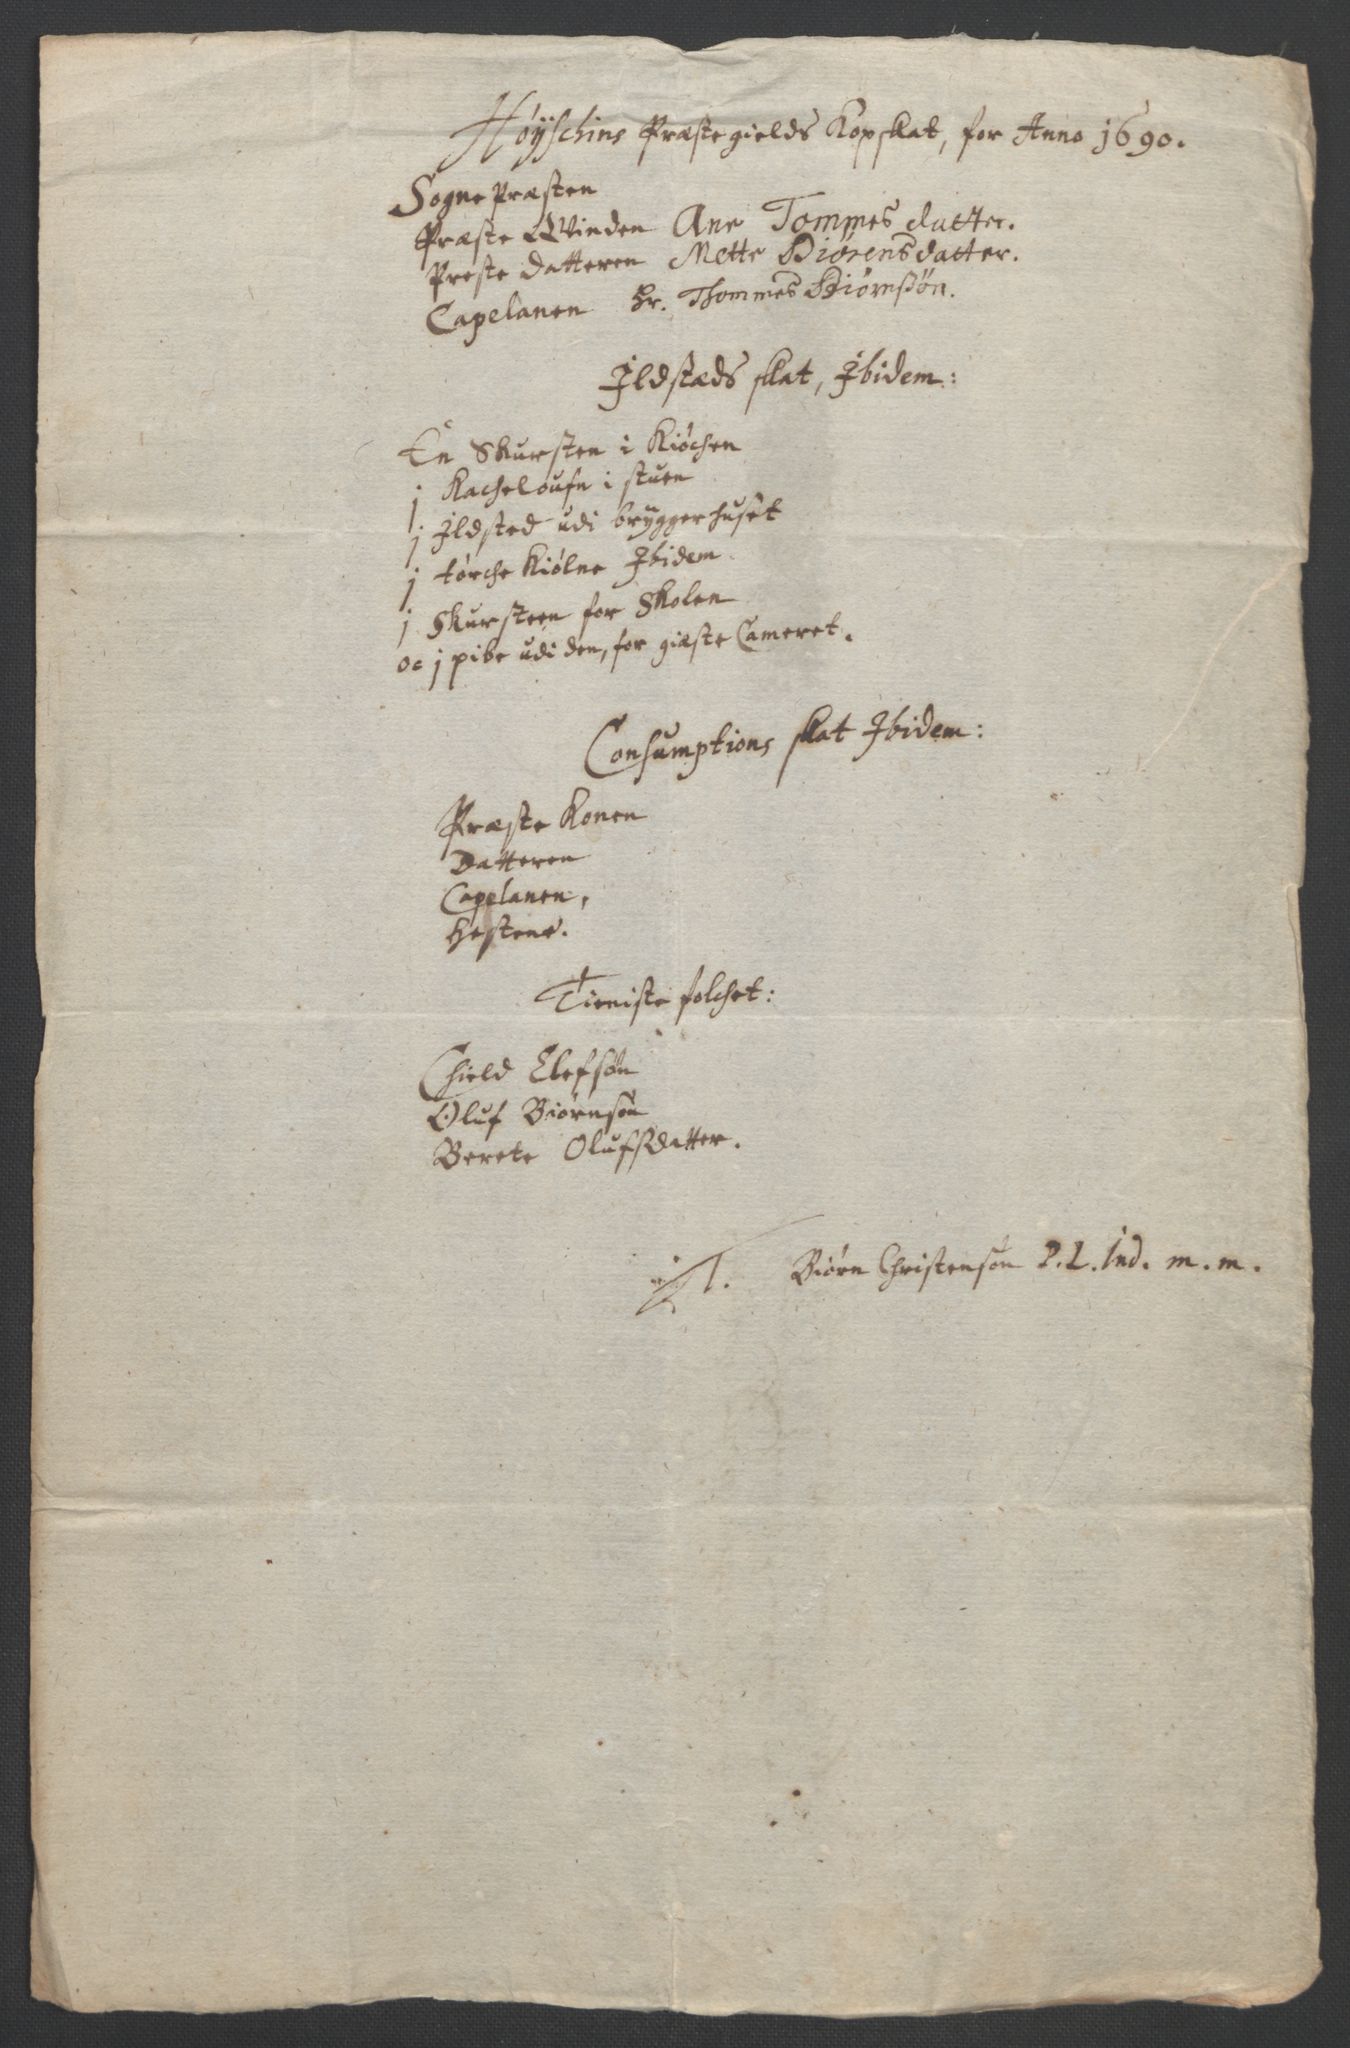 Høyschins Præstegields Kopskat, for Anno 1690.
Sogne Præsten
Præste Qvinden Ane Tommes datter.
Preste datteren Mette Biørensdatter.
Capelanen Hr. Thommes Biørnssøn.
Ildstæds skat, Ibidem:
En Skursten i Kiöchen
j Kacheloufn i stuen
j Ildsted udi bryggerhuset
j törche Kiölne Ibidem
j Skursteen for Skolen
oc j pibe udi den, for giæste Cameret.
Consumptions skat Ibidem:
Præste Konen
Datteren
Capelanen,
Hestene.
Tieniste folchet:
Chield Elefsön
Oluf Biörnsön
Berete Olufsdatter.
Biörn Christensön P. L. Ind. m. m.